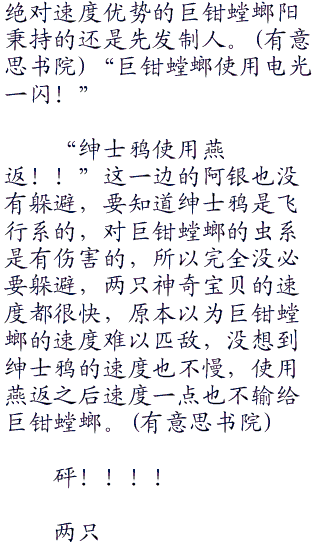 绝对速度优势的巨钳螳螂阳
秉持的还是先发制人。(有意
思书院)“巨钳螳螂使用电光
一闪！”
“绅士鸦使用燕
返！！”这一边的阿银也没
有躲避，要知道绅士鸦是飞
行系的，对巨钳螳螂的虫系
是有伤害的，所以完全没必
要躲避，两只神奇宝贝的速
度都很快，原本以为巨钳螳
螂的速度难以匹敌，没想到
绅士鸦的速度也不慢，使用
燕返之后速度一点也不输给
巨钳螳螂。(有意思书院)
砰！！！！
两只